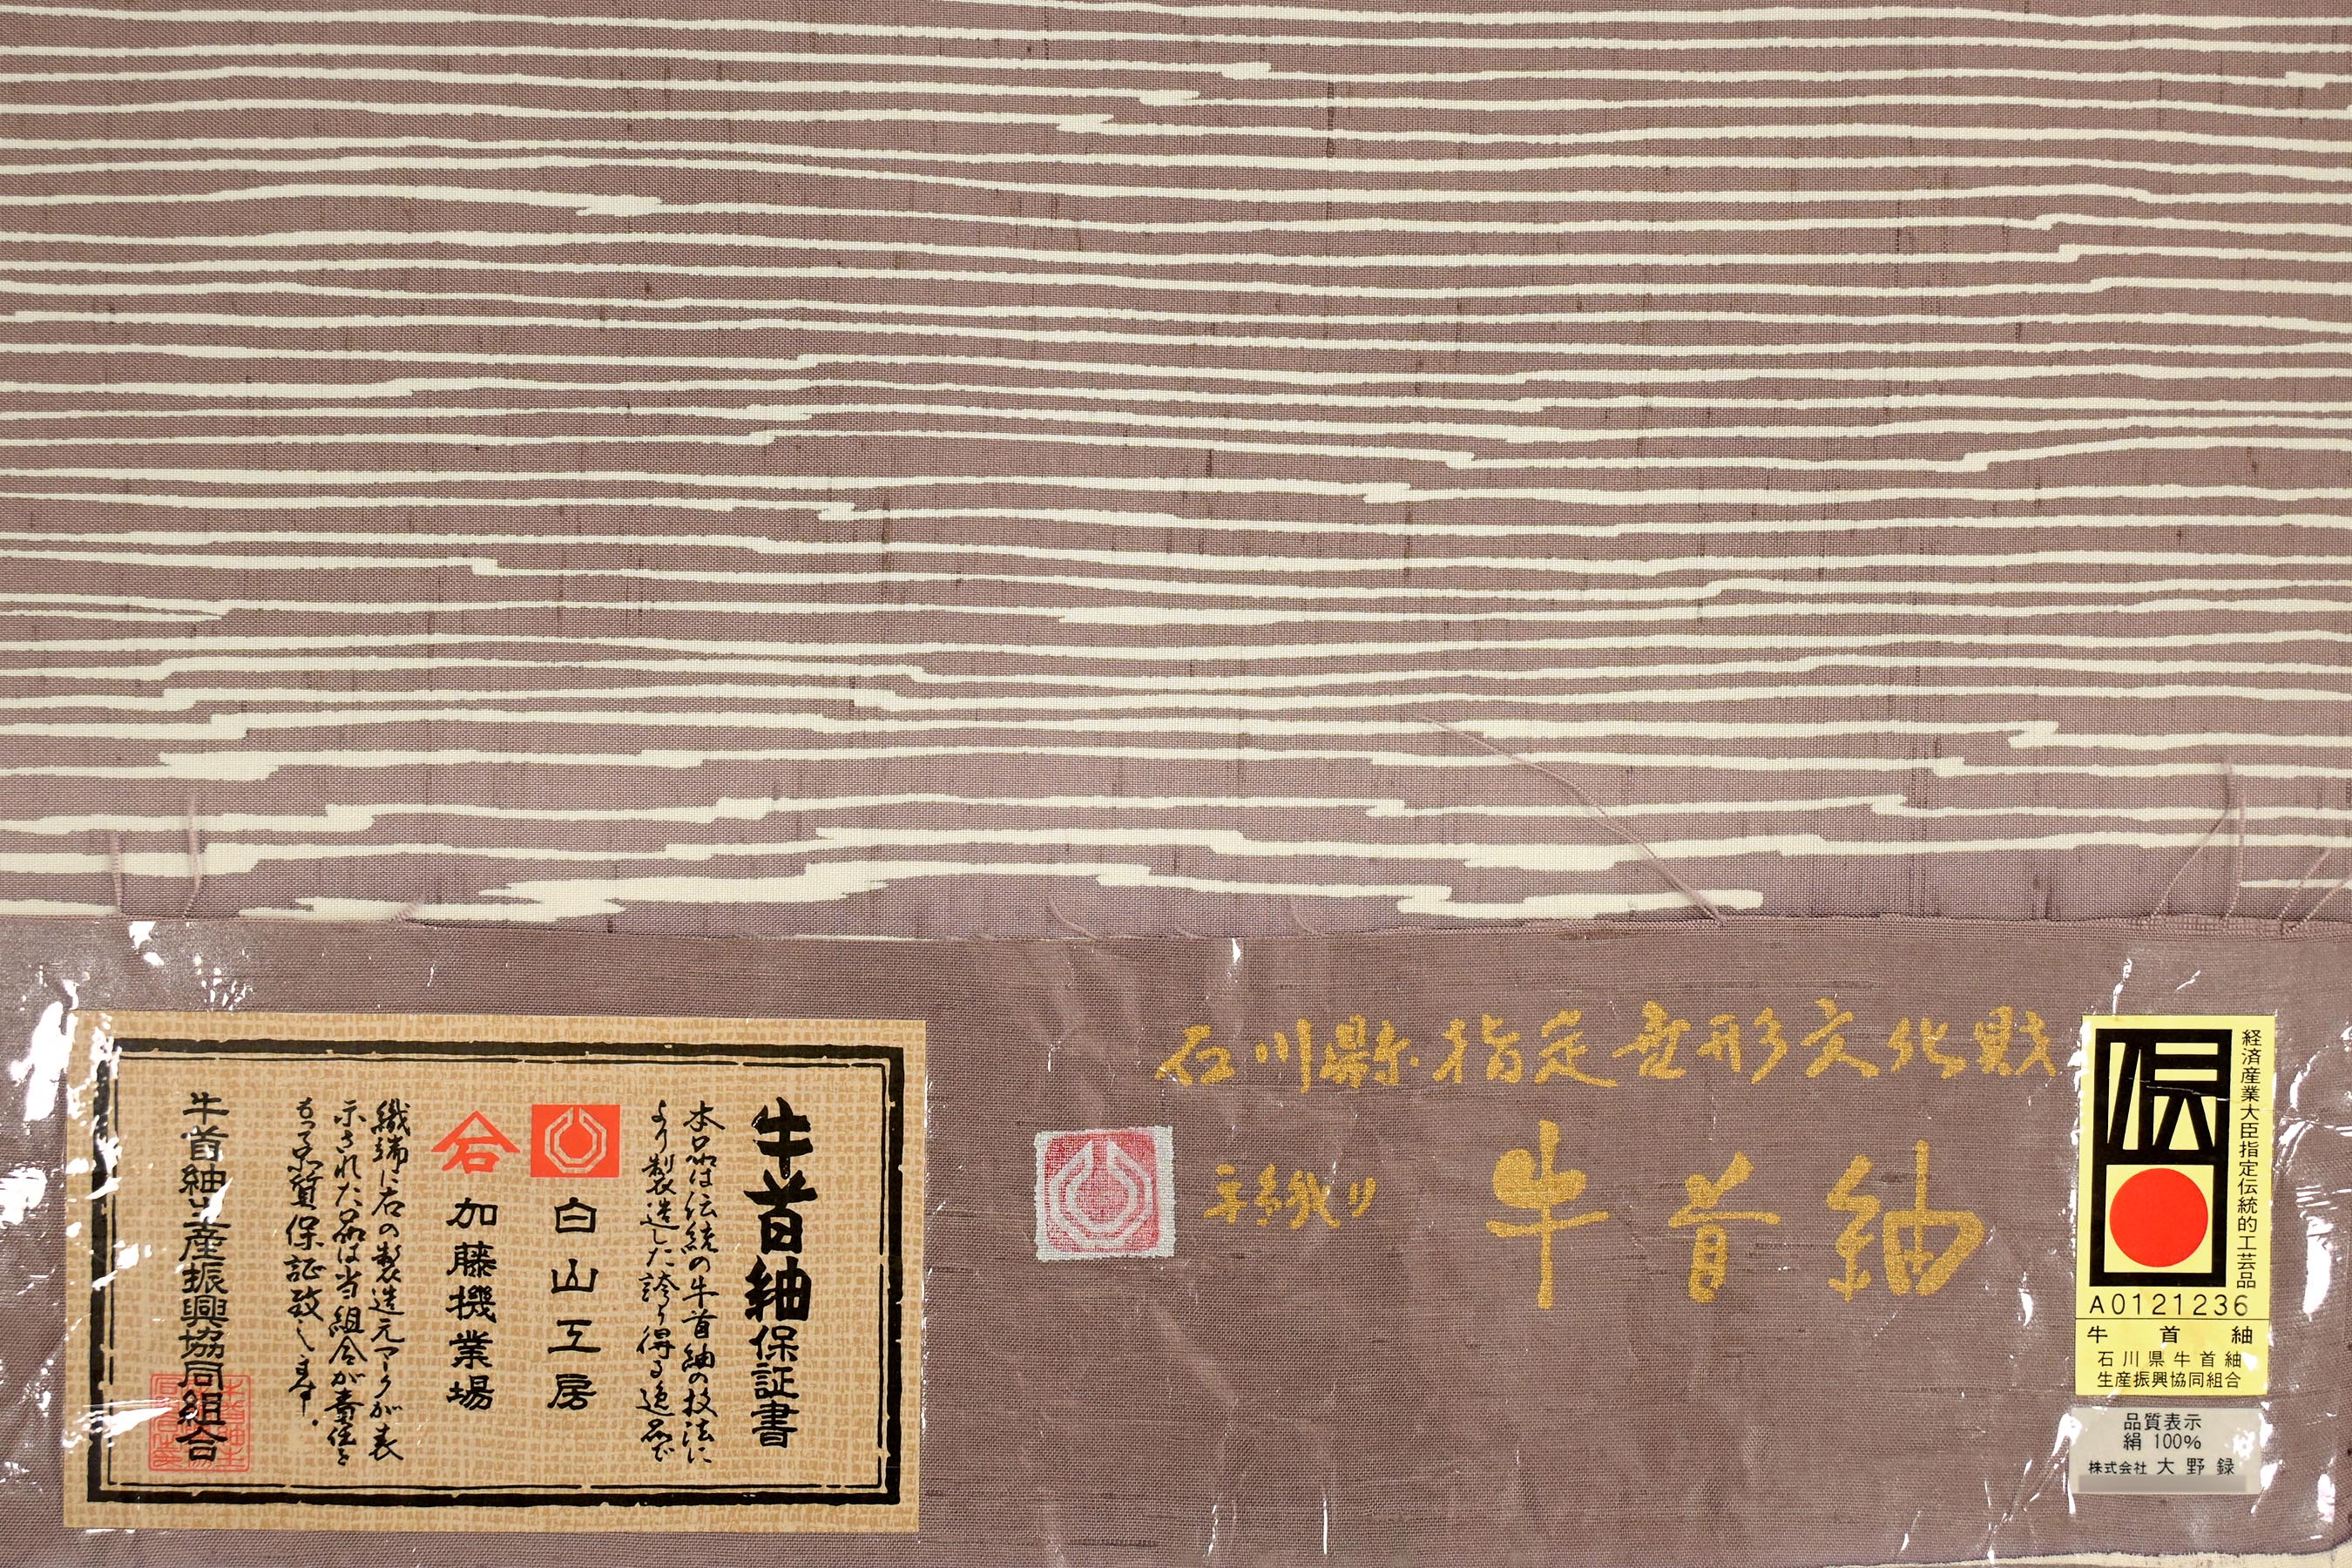 石川県指定無形文化財
牛首紬
手織り
伝
経済産業大臣指定伝統的工芸品
A0121236
牛首紬
石川県牛首紬
生産振興協同組合
品質表示
絹 100%
株式会社 大野録
牛首紬保証書
本品は伝統の牛首紬の技法に
より製造した誇り得る逸品で
白山工房
石
加藤機業場
織端に右の製造元マークが表
示された品は当組合が責任を
もって品質保証致します。
牛首紬生産振興協同組合